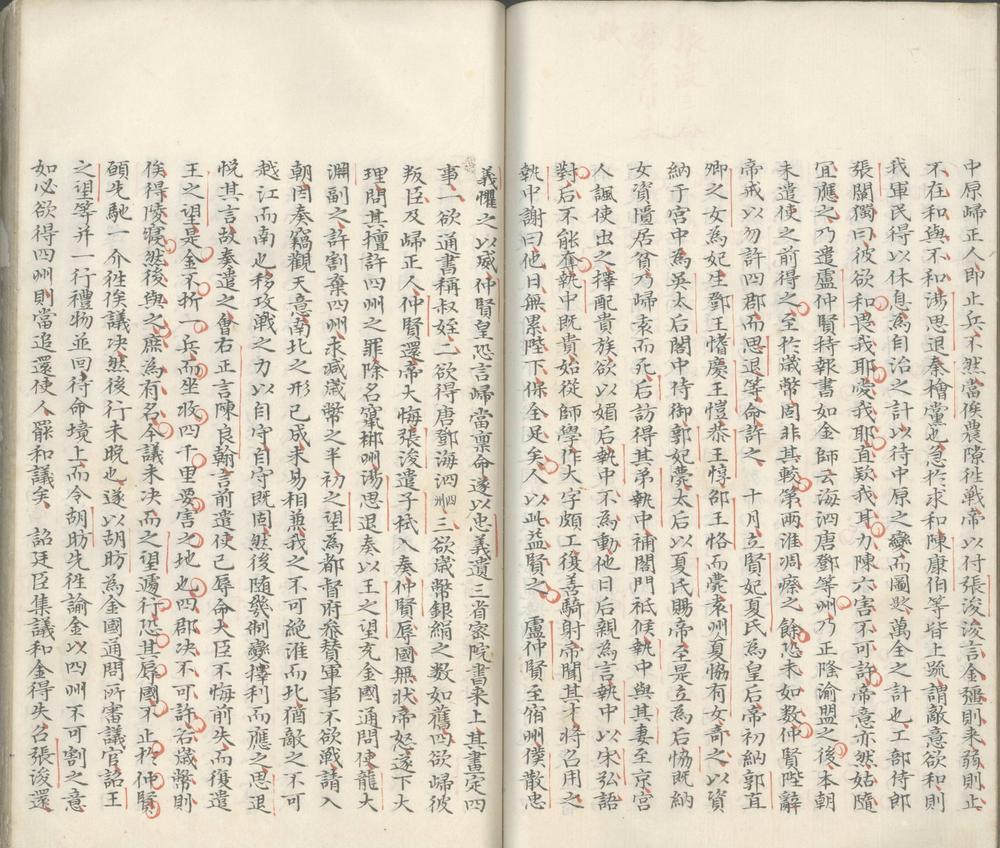 中原歸正人即止兵不然當俟農隙徃戰帝以付張浚浚言金彊則来弱則止
不在和與不和湯思退秦檜黨也急於求和陳康伯等皆上䟽謂敵意欲和則
我軍民得以休息為自治之計以待中原之變而圖此萬全之計也工部侍郎
張闡獨曰彼欲和畏我耶愛我耶直欵我耳力陳六害不可許帝意亦然姑隨
冝應之乃遣盧仲賢持報書如金師云海泗唐鄧等州乃正隆渝盟之後本朝
未遣使之前得之至於嵗幣固非其較第两淮凋瘵之餘恐未如數仲賢陛辭
帝戒以勿許四郡而思退等命許之　十月立賢妃夏氏為皇后帝初納郭直
卿之女為妃生鄧王愭慶王愷恭王惇邵王恪而薨袁州夏恊有女竒之以資
納于宮中為吳太后閤中侍御郭妃薨太后以夏氏賜帝至是立為后恊既納
女資匱居貧乃歸袁而死后訪得其弟執中補閤門祗候執中與其妻至京宮
人諷使出之擇配貴族欲以媚后執中不為動他日后親為言執中以宋弘語
對后不能奪執中既貴始從師學作大字頗工復善騎射帝聞其才將召用之
執中謝曰他日無累陛下保全足矣人以此益賢之　盧仲賢至宿州僕散忠
義懼之以威仲賢皇恐言歸當禀命遂以忠義遺三省宻院書来上其畫定四
事一欲通書稱叔姪二欲得唐鄧海泗四州三欲嵗幣銀絹之數如舊四欲歸彼
叛臣及歸正人仲賢還帝大悔張浚遣子栻入奏仲賢辱國無狀帝怒遂下大
理問其擅許四州之罪除名竄郴州湯思退奏以王之望充金國通問使龍大
淵副之許割棄四州求减嵗幣之半初之望為都督府叅賛軍事不欲戰請入
朝因奏竊觀天意南北之形已成未易相兼我之不可絶淮而北猶敵之不可
越江而南也移攻戰之力以自守自守既固然後随幾制變擇利而應之思退
悦其言故奏遣之會右正言陳良翰言前遣使已辱命大臣不悔前失而復遣
王之望是金不折一兵而坐收四千里要害之地也四郡决不可許若嵗幣則
俟得陵寢然後與之庶為有名今議未决而之望遽行恐其辱國不止於仲賢
願先馳一介徃俟議决然後行未晩也遂以胡昉為金國通問所審議官詔王
之望等并一行禮物並回待命境上而令胡昉先徃諭金以四州不可割之意
如必欲得四州則當追還使人罷和議矣　詔廷臣集議和金得失召張浚還